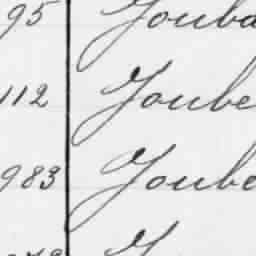 95 Jouba
112 Joube
983 Joube